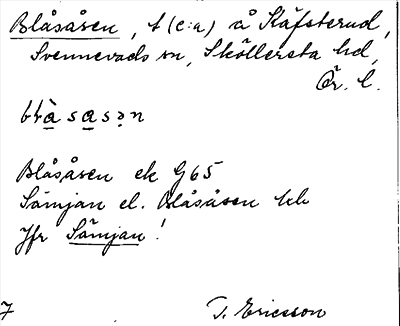 Blåsåsen, t (e:a) å Käfsterud,
Svennevads sn, Sköllersta hd,
Ör. l.
Blåsåsen ek G65
Sämjan el. Blåsåsen hk
Jfr Sämjan!
7 T. Ericsson